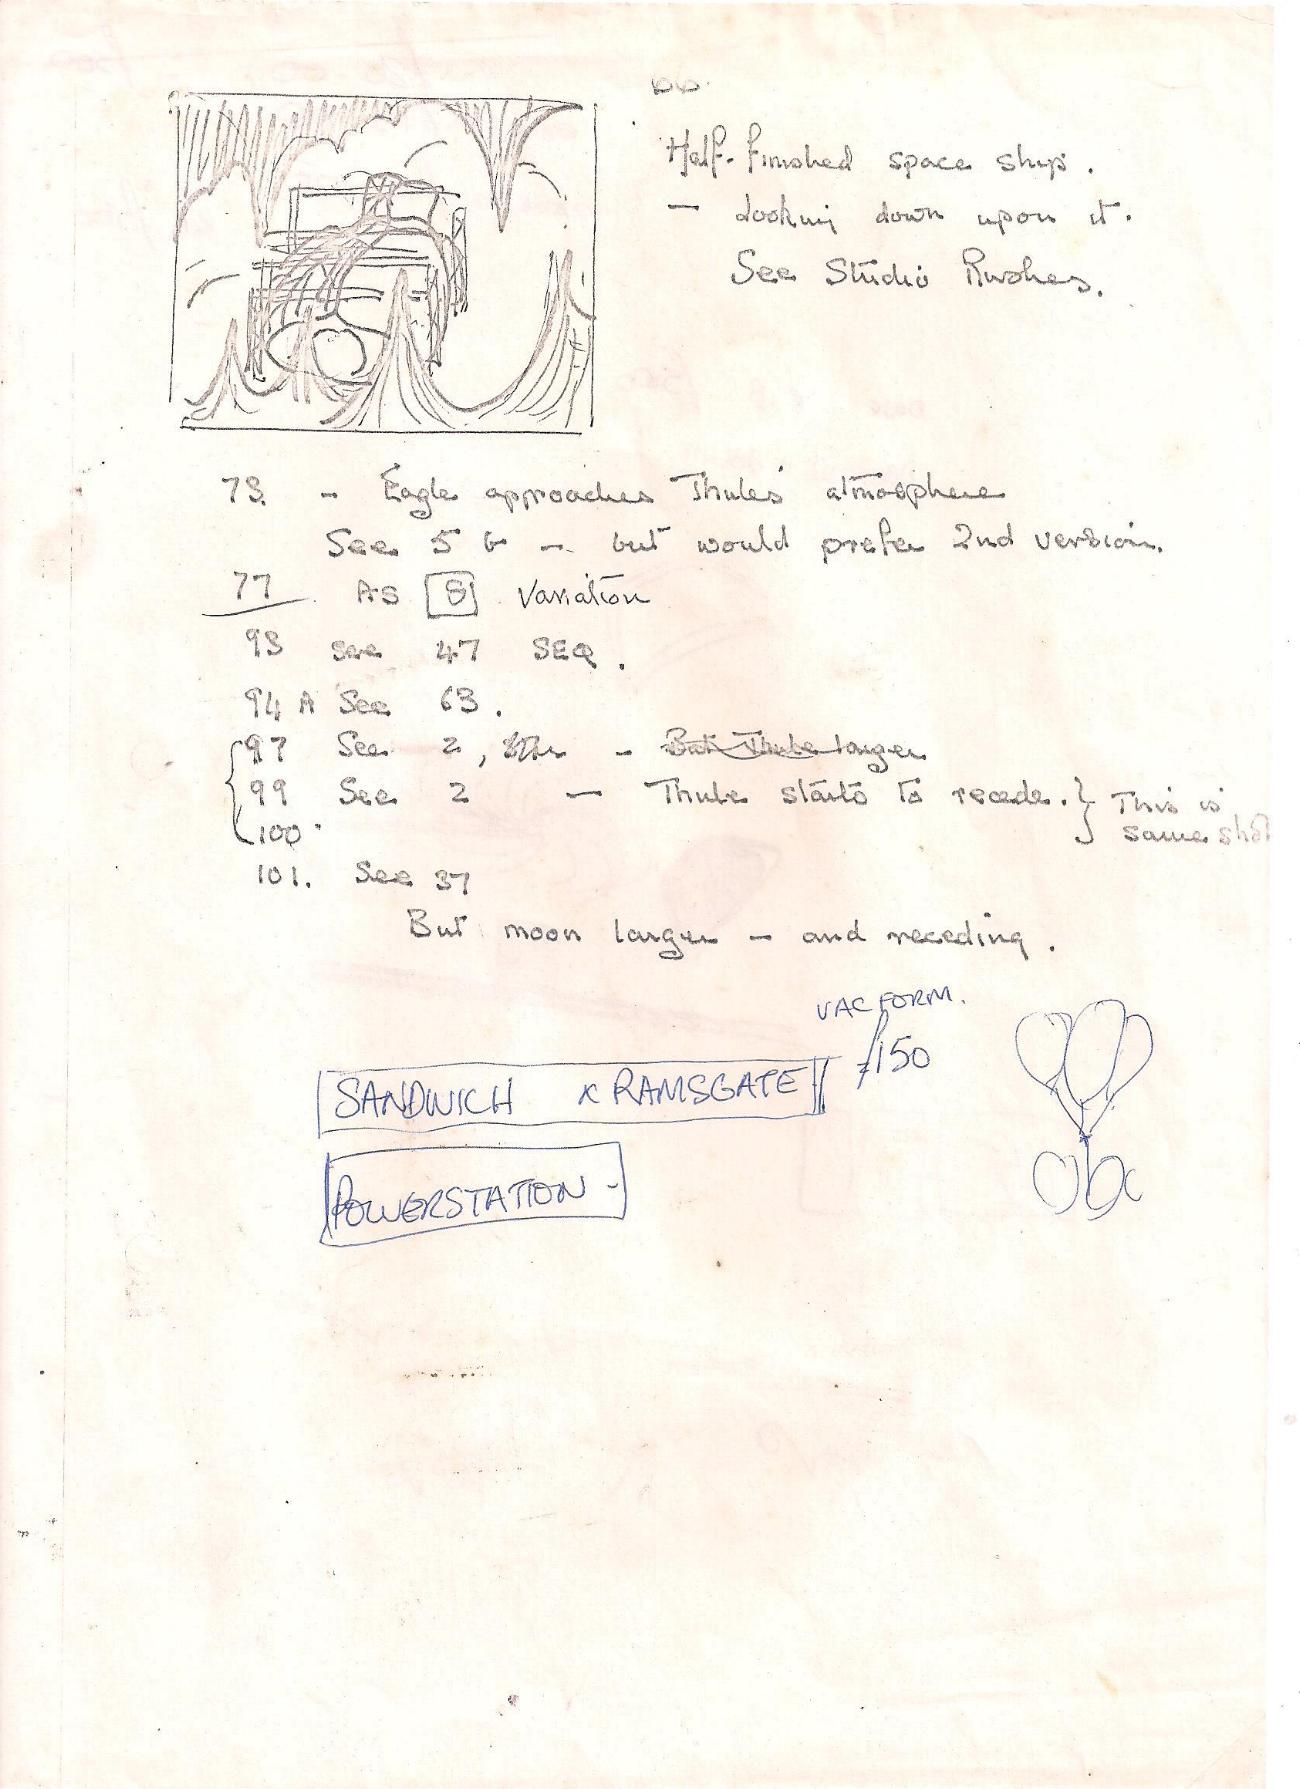 66.
Half-finished space ship.
— Looking down upon it.
See Studio Rushes.
73. - Eagle approaches Thule's atmosphere
See 5 b — but would prefer 2nd version.
77 AS 8 Variation
93 see 47 SEQ.
94 A See 63.
97 See 2, - But Thule larger
99 See 2 — Thule starts to recede. } This is
100. same shot
101. See 37
But moon larger — and receding.
VAC FORM.
£150
SANDWICH RAMSGATE
POWERSTATION -